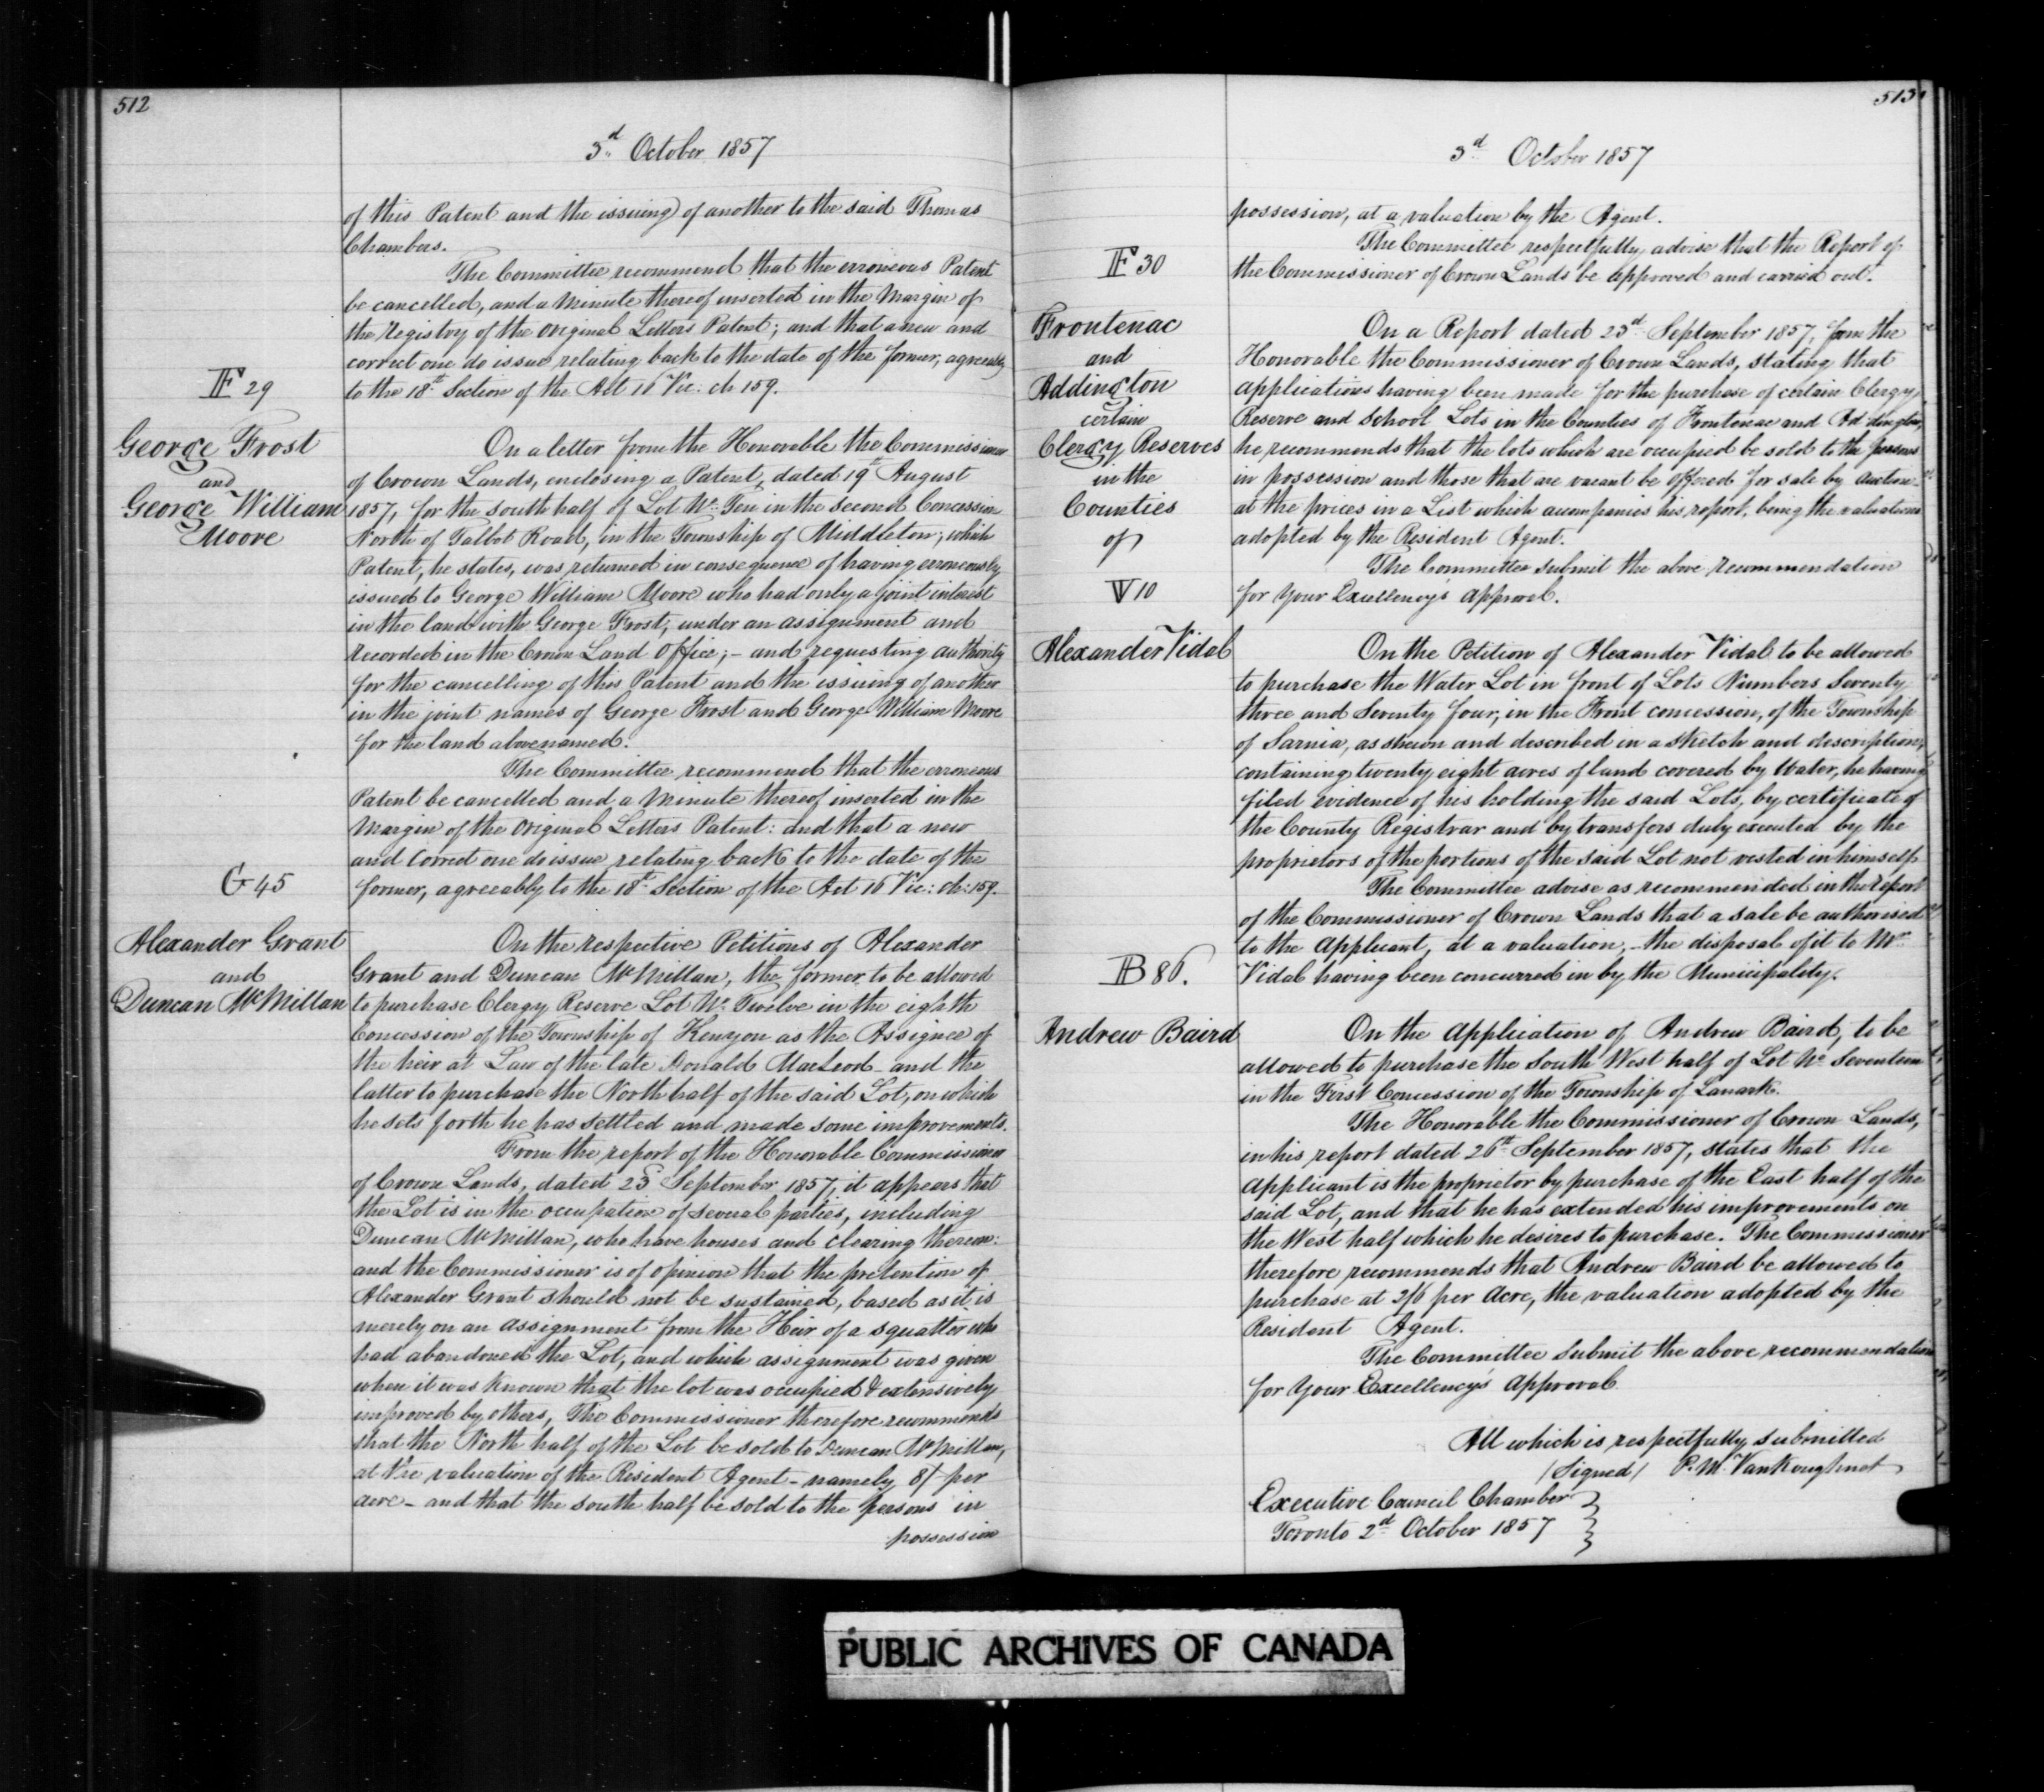 512
3d October 1857
of this Patent and the issuing of another to the said Thomas
Chambers.
The Committee recommend that the erroneous Patent
be cancelled, and a Minute thereof inserted in the Margin of
the Registry of the Original Letters Patent; and that a new and
correct one do issue relating back to the date of the former, agreeably
to the 18th Section of the Act 16 Vic: ch 159.
F 29
George Frost
and
George William
Moore
On a letter from the Honorable the Commissioner
of Crown Lands, enclosing a Patent, dated 19th August
1857, for the south half of Lot No. Ten in the second Concession
North of Talbot Road, in the Township of Middleton; which
Patent, he states, was returned in consequence of having erroneously
issued to George William Moore who had only a joint interest
in the land with George Frost, under an assignment and
recorded in the Crown Land Office; - and requesting authority
for the cancelling of this Patent and the issuing of another
in the joint names of George Frost and George William Moore
for the land abovenamed.
The Committee recommend that the erroneous
Patent be cancelled and a Minute thereof inserted in the
Margin of the Original Letters Patent: and that a new
and correct one do issue relating back to the date of the
former, agreeably to the 18th Section of the Act 16 Vic: ch: 159.
G 45
Alexander Grant
and
Duncan McMillan
On the respective Petitions of Alexander
Grant and Duncan McMillan, the former to be allowed
to purchase Clergy Reserve Lot No. Twelve in the eighth
Concession of the Township of Kenyon as the Assignee of
the heir at Law of the late Donald MacLeod - and the
latter to purchase the North half of the said Lot, on which
he sets forth he has settled and made some improvements.
From the report of the Honorable Commissioner
of Crown Lands, dated 25 September 1857, it appears that
the Lot is in the occupation of several parties, including
Duncan McMillan, who have houses and clearing thereon:
and the Commissioner is of opinion that the pretention of
Alexander Grant should not be sustained, based as it is
merely on an assignment from the Heir of a squatter who
had abandoned the Lot, and which assignment was given
when it was known that the lot was occupied & extensively
improved by others, The Commissioner therefore recommends
that the North half of the Lot be sold to Duncan McMillan,
at the valuation of the Resident Agent - namely 8/ per
acre - and that the south half be sold to the persons in
possession
513
3d October 1857
possession, at a valuation by the Agent.
The Committee respectfully advise that the Report of
the Commissioner of Crown Lands be approved and carried out.
F 30
Frontenac
and
Addington
certain
Clergy Reserves
in the
Counties
of
On a Report dated 23d September 1857, from the
Honorable the Commissioner of Crown Lands, stating that
applications having been made for the purchase of certain Clergy
Reserve and School Lots in the Counties of Frontenac and Addington,
he recommends that the lots which are occupied be sold to the persons
in possession and those that are vacant be offered for sale by Auction
at the prices in a List which acompanies his report, being the valuations
adopted by the Resident Agent.
The Committee submit the above recommendation
for Your Excellency's approval.
V 10
Alexander Vidal
On the Petition of Alexander Vidal to be allowed
to purchase the Water Lot in front of Lots Numbers Seventy
three and Seventy four, in the Front concession, of the Township
of Sarnia, as shewn and described in a sketch and description,
containing twenty eight acres of land covered by Water, he having
filed evidence of his holding the said Lots, by certificate of
the County Registrar and by transfers duly executed by the
proprietors of the portions of the said Lot not vested in himself
The Committee advise as recommended in the report
of the Commissioner of Crown Lands that a sale be authorised
to the Applicant, at a valuation, - the disposal of it to Mr.
Vidal having been concurred in by the Municipality.
B 86.
Andrew Baird
On the application of Andrew Baird, to be
allowed to purchase the South West half of Lot No. Seventeen
in the First Concession of the Township of Lanark.
The Honorable the Commissioner of Crown Lands,
in his report dated 26th September 1857, states that the
Applicant is the proprietor by purchase of the East half of the
said Lot, and that he has extended his improvements on
the West half which he desires to purchase. The Commissioner
therefore recommends that Andrew Baird be allowed to
purchase at 2/6 per Acre, the valuation adopted by the
Resident Agent.
The Committee submit the above recommendation
for Your Excellency's approval
All which is respectfully submitted
(Signed) P. M. VanKoughnet
Executive Council Chamber
Toronto 2d October 1857
PUBLIC ARCHIVES OF CANADA